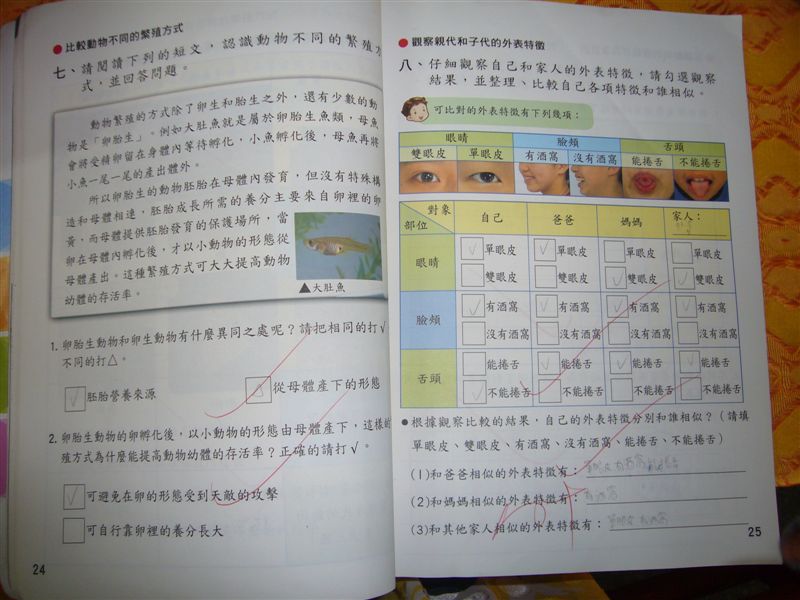 ●比較動物不同的繁殖方式
七、請閱讀下列的短文,認識動物不同的繁殖方
式,並回答問題。
動物繁殖的方式除了卵生和胎生之外,還有少數的動
物是「卵胎生」。例如大肚魚就是屬於卵胎生魚類,母魚
會將受精卵留在身體內等待孵化,小魚孵化後,母魚再將
小魚一尾一尾的產出體外。
所以卵胎生的動物胚胎在母體內發育,但沒有特殊構
造和母體相連,胚胎成長所需的養分主要來自卵裡的卵
黃,而母體提供胚胎發育的保護場所,當
卵在母體內孵化後,才以小動物的形態從
母體產出。這種繁殖方式可大大提高動物
幼體的存活率。
▲大肚魚
1.卵胎生動物和卵生動物有什麼異同之處呢?請把相同的打√
不同的打△。
√胚胎營養來源
△從母體產下的形態
2.卵胎生動物的卵孵化後,以小動物的形態由母體產下,這樣的
殖方式為什麼能提高動物幼體的存活率?正確的請打√。
√可避免在卵的形態受到天敵的攻擊
可自行靠卵裡的養分長大
24
●觀察親代和子代的外表特徵
八、仔細觀察自己和家人的外表特徵,請勾選觀察
結果,並整理、比較自己各項特徵和誰相似。
可比對的外表特徵有下列幾項:
眼睛 臉頰 舌頭
雙眼皮 單眼皮 有酒窩 沒有酒窩 能捲舌 不能捲舌
對象 部位 自己 爸爸 媽媽 家人:
眼睛 √單眼皮 √單眼皮 單眼皮 單眼皮
雙眼皮 雙眼皮 √雙眼皮 √雙眼皮
臉頰 √有酒窩 √有酒窩 √有酒窩 √有酒窩
沒有酒窩 沒有酒窩 沒有酒窩 沒有酒窩
舌頭 能捲舌 √能捲舌 √能捲舌 √能捲舌
√不能捲舌 不能捲舌 不能捲舌 不能捲舌
●根據觀察比較的結果,自己的外表特徵分別和誰相似?(請填
單眼皮、雙眼皮、有酒窩、沒有酒窩、能捲舌、不能捲舌)
(1)和爸爸相似的外表特徵有:
(2)和媽媽相似的外表特徵有:有酒窩
(3)和其他家人相似的外表特徵有:
25